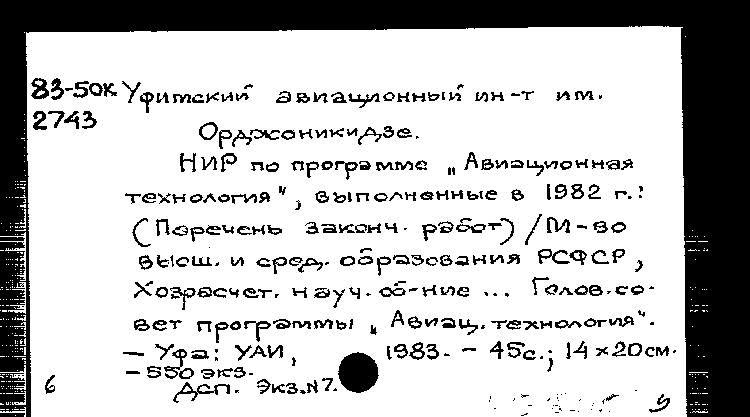 83-50К Уфимский авиационный ин-т им.
2743 Орджоникидзе.
НИР по программе „Авиационная
технология", выполненные в 1982 г.:
(Перечень законч. работ) / М-во
высш. и сред. образования РСФСР,
Хозрасчет. науч. об-ние ... Голов. со-
вет программы „Авиац. технология".
– Уфа: УАИ, 1983. – 45с.; 14×20см.
– 550 экз.
6 ДСП. Экз.№7.